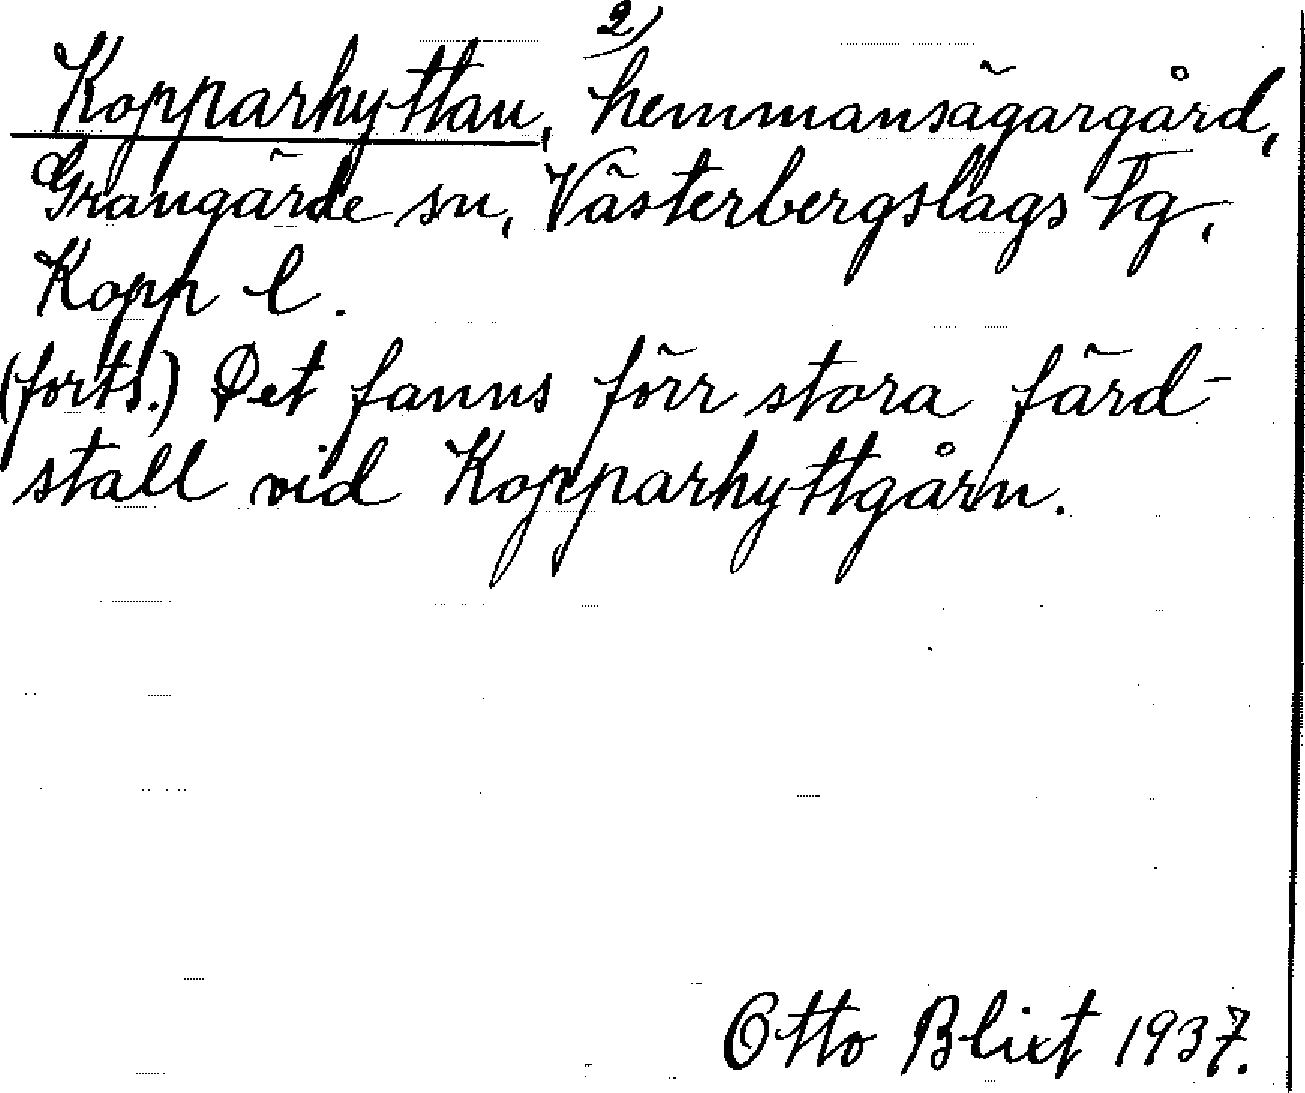 2)
Kopparhyttan, hemmansägargård,
Grangärde sn, Västerbergslags Fg,
Kopp l.
(forts.) Det fanns förr stora färd-
stall vid Kopparhyttgårn.
Otto Blixt 1937.